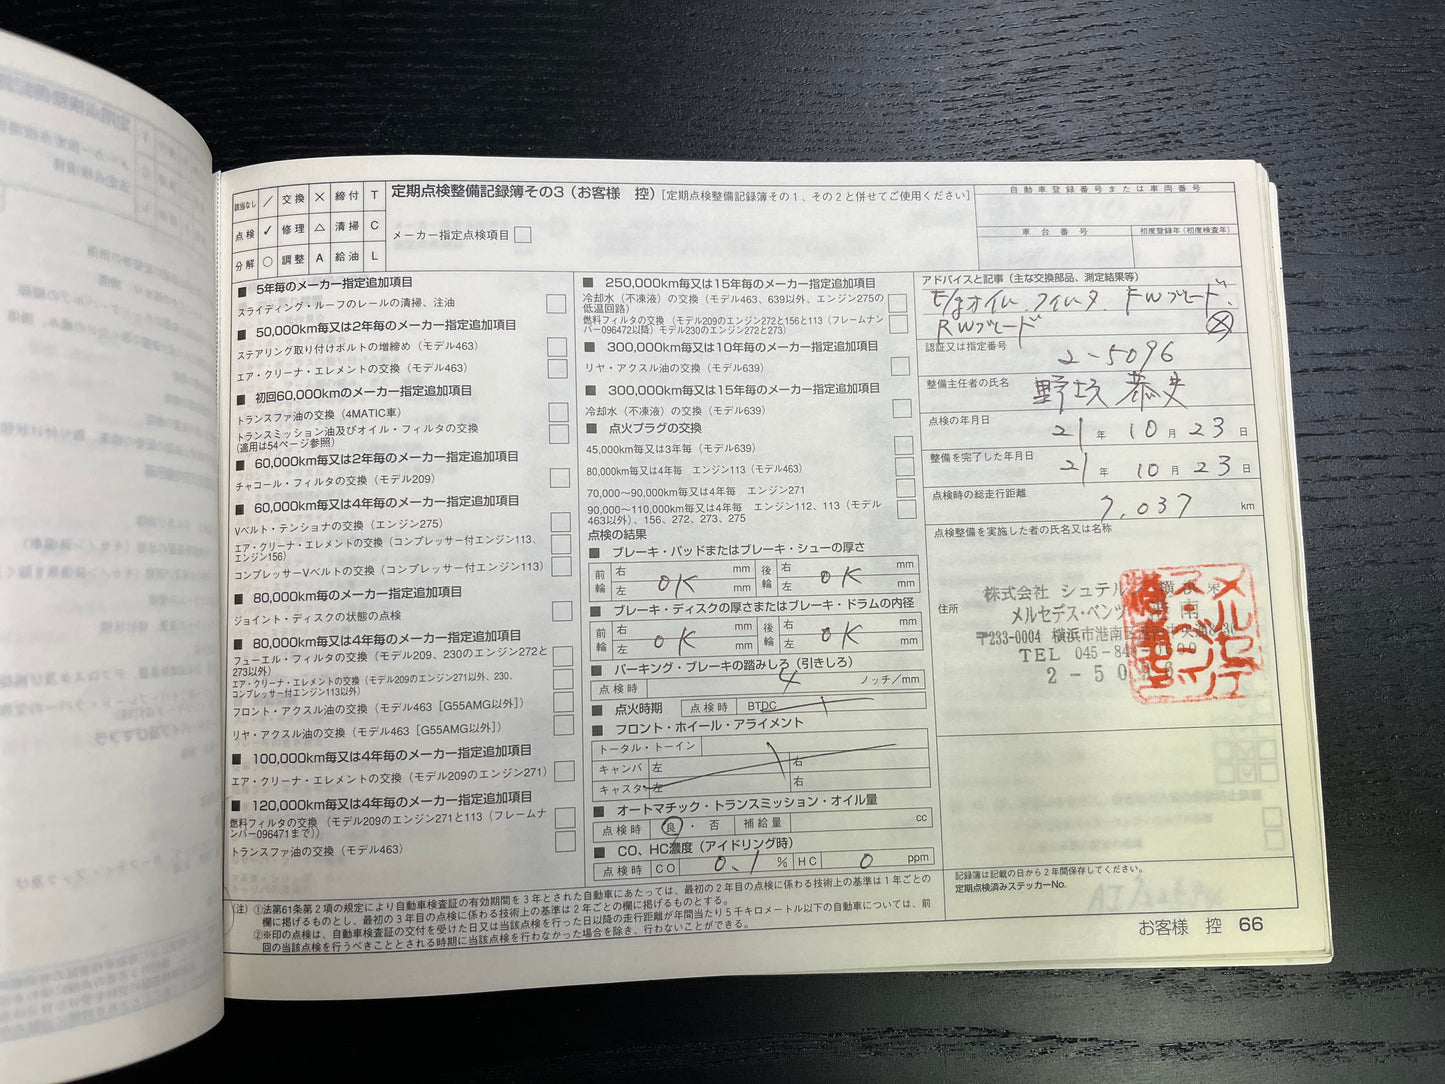 該当なし ／ 交換 ✕ 締付 T
点検 ✓ 修理 △ 清掃 C
分解 ○ 調整 A 給油 L
定期点検整備記録簿その3（お客様 控）［定期点検整備記録簿その1、その2と併せてご使用ください］
メーカー指定点検項目
自動車登録番号または車両番号
車台番号
初度登録年（初度検査年）
■ 5年毎のメーカー指定追加項目
スライディング・ルーフのレールの清掃、注油
■ 50,000km毎又は2年毎のメーカー指定追加項目
ステアリング取り付けボルトの増締め（モデル463）
エア・クリーナ・エレメントの交換（モデル463）
■ 初回60,000kmのメーカー指定追加項目
トランスファ油の交換（4MATIC車）
トランスミッション油及びオイル・フィルタの交換
（適用は54ページ参照）
■ 60,000km毎又は2年毎のメーカー指定追加項目
チャコール・フィルタの交換（モデル209）
■ 60,000km毎又は4年毎のメーカー指定追加項目
Vベルト・テンショナの交換（エンジン275）
エア・クリーナ・エレメントの交換（コンプレッサー付エンジン113、
エンジン156）
コンプレッサーVベルトの交換（コンプレッサー付エンジン113）
■ 80,000km毎のメーカー指定追加項目
ジョイント・ディスクの状態の点検
■ 80,000km毎又は4年毎のメーカー指定追加項目
フューエル・フィルタの交換（モデル209、230のエンジン272と
273以外）
エア・クリーナ・エレメントの交換（モデル209のエンジン271以外、230、
コンプレッサー付エンジン113以外）
フロント・アクスル油の交換（モデル463［G55AMG以外］）
リヤ・アクスル油の交換（モデル463［G55AMG以外］）
■ 100,000km毎又は4年毎のメーカー指定追加項目
エア・クリーナ・エレメントの交換（モデル209のエンジン271）
■ 120,000km毎又は4年毎のメーカー指定追加項目
燃料フィルタの交換（モデル209のエンジン271と113（フレームナ
ンバー096471まで））
トランスファ油の交換（モデル463）
■ 250,000km毎又は15年毎のメーカー指定追加項目
冷却水（不凍液）の交換（モデル463、639以外、エンジン275の
低温回路）
燃料フィルタの交換（モデル209のエンジン272と156と113（フレームナン
バー096472以降）モデル230のエンジン272と273）
■ 300,000km毎又は10年毎のメーカー指定追加項目
リヤ・アクスル油の交換（モデル639）
■ 300,000km毎又は15年毎のメーカー指定追加項目
冷却水（不凍液）の交換（モデル639）
■ 点火プラグの交換
45,000km毎又は3年毎（モデル639）
80,000km毎又は4年毎 エンジン113（モデル463）
70,000〜90,000km毎又は4年毎 エンジン271
90,000〜110,000km毎又は4年毎 エンジン112、113（モデル
463以外）、156、272、273、275
点検の結果
■ ブレーキ・パッドまたはブレーキ・シューの厚さ
前輪 右 左 OK mm mm 後輪 右 左 OK mm mm
■ ブレーキ・ディスクの厚さまたはブレーキ・ドラムの内径
前輪 右 左 OK mm mm 後輪 右 左 OK mm mm
■ パーキング・ブレーキの踏みしろ（引きしろ）
点検時 4 ノッチ/mm
■ 点火時期 点検時 BTDC
■ フロント・ホイール・アライメント
トータル・トーイン
キャンバ 左 右
キャスタ 左 右
■ オートマチック・トランスミッション・オイル量
点検時 良・否 補給量 cc
■ CO、HC濃度（アイドリング時）
点検時 CO 0.1 % HC 0 ppm
アドバイスと記事（主な交換部品、測定結果等）
E/gオイル、フィルタ、FWブレード、
RWブレード ⊗
認証又は指定番号
2-5096
整備主任者の氏名
点検の年月日
21 年 10 月 23 日
整備を完了した年月日
21 年 10 月 23 日
点検時の総走行距離
7,037 km
点検整備を実施した者の氏名又は名称
住所
株式会社 シュテル
メルセデス・ベンツ
〒233-0004 横浜市港南
TEL 045-84
2-50
記録簿は記載の日から2年間保存してください。
定期点検済みステッカーNo.
（注）①法第61条第2項の規定により自動車検査証の有効期間を3年とされた自動車にあたっては、最初の2年目の点検に係わる技術上の基準は1年ごとの
欄に掲げるものとし、最初の3年目の点検に係わる技術上の基準は2年ごとの欄に掲げるものとする。
②※印の点検は、自動車検査証の交付を受けた日又は当該点検を行った日以降の走行距離が年間当たり5千キロメートル以下の自動車については、前
回の当該点検を行うべきこととされる時期に当該点検を行わなかった場合を除き、行わないことができる。
お客様 控 66